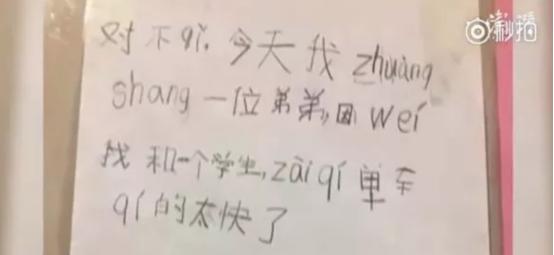 秒拍
对不qǐ,今天我zhuàng
shang一位弟弟,因wéi
找和一个学生,zài qí单车
qí的太快了